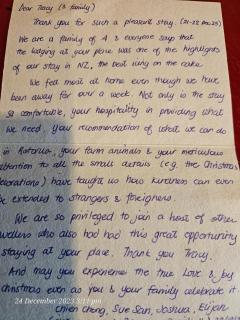 Dear Tracy (& family)
Thank you for such a pleasant stay. (21-22 Dec 23)
We are a family of 4 & everyone says that
the lodging at your place was one of the highlights
of our stay in NZ, the best icing on the cake.
We felt most at home even though we have
been away for over a week. Not only is the stay
so comfortable, your hospitality in providing what
we need, your recommendation of what we can do
in Rotorua, your farm animals & your meticulous
attention to all the small details (e.g. the Christmas
decorations) have taught us how kindness can even
be extended to strangers & foreigners.
We are so privileged to join a host of other
travellers who also had had this great opportunity
staying at your place. Thank you Tracy.
And may you experience the true Love & Joy
Christmas even as you & your family celebrate it.
24 December 2023 3:11 pm
Chien Chong, Sue San, Joshua, Elijah